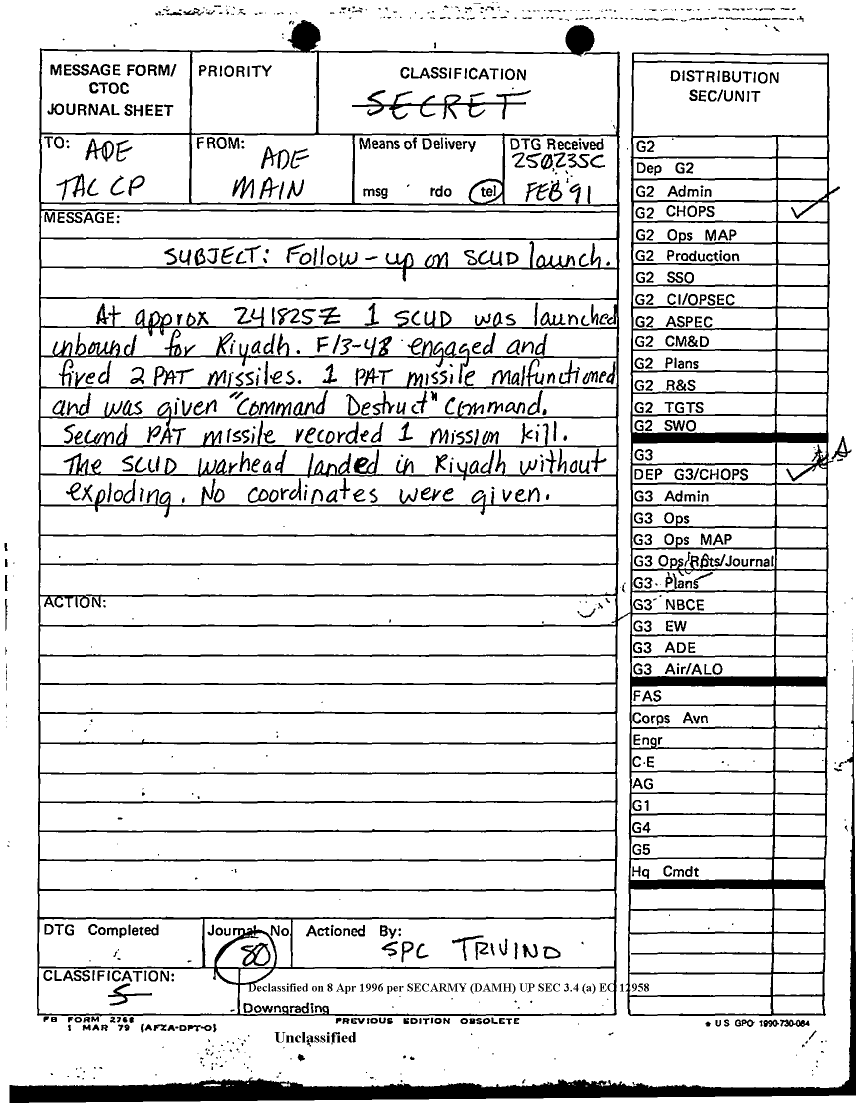 MESSAGE FORM/
CTOC
JOURNAL SHEET
PRIORITY
CLASSIFICATION
SECRET
TO: ADE
TAC CP
FROM: ADE
MAIN
Means of Delivery
msg rdo tel
DTG Received
250235C
FEB 91
MESSAGE:
SUBJECT: Follow-up on SCUD launch.
At approx 241825Z 1 SCUD was launched
inbound for Riyadh. F/3-43 engaged and
fired 2 PAT missiles. 1 PAT missile malfunctioned
and was given "Command Destruct" Command.
Second PAT missile recorded 1 mission kill.
The SCUD warhead landed in Riyadh without
exploding. No coordinates were given.
ACTION:
DTG Completed
Journal No.
80
Actioned By:
SPC TRIVINO
CLASSIFICATION:
S
Declassified on 8 Apr 1996 per SECARMY (DAMH) UP SEC 3.4 (a) EO 12958
Downgrading
FB FORM 2768
1 MAR 79 (AFZA-DPT-O)
PREVIOUS EDITION OBSOLETE
Unclassified
DISTRIBUTION
SEC/UNIT
G2
Dep G2
G2 Admin
G2 CHOPS
G2 Ops MAP
G2 Production
G2 SSO
G2 CI/OPSEC
G2 ASPEC
G2 CM&D
G2 Plans
G2 R&S
G2 TGTS
G2 SWO
G3
DEP G3/CHOPS
G3 Admin
G3 Ops
G3 Ops MAP
G3 Ops/Rpts/Journal
G3 Plans
G3 NBCE
G3 EW
G3 ADE
G3 Air/ALO
FAS
Corps Avn
Engr
C-E
AG
G1
G4
G5
Hq Cmdt
* U S GPO 1990-730-084